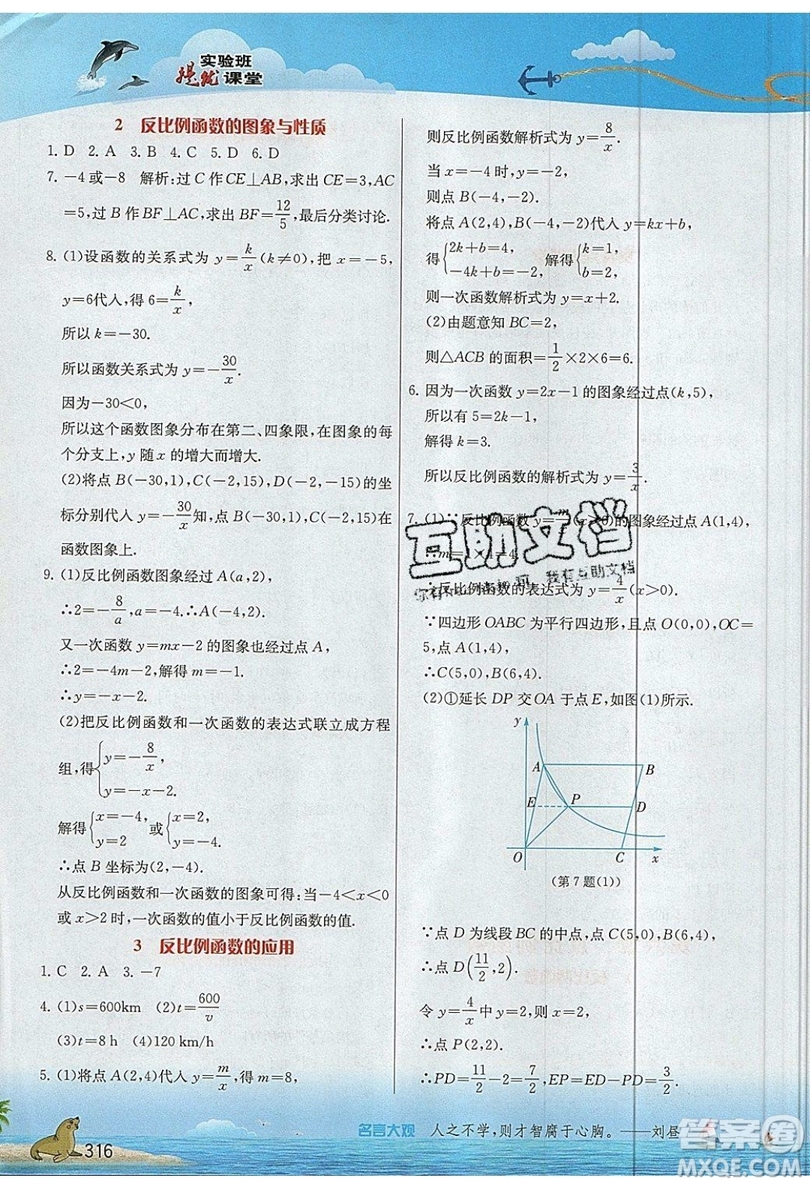 实验班
提优课堂
2 反比例函数的图象与性质
1. D 2. A 3. B 4. C 5. D 6. D
7. -4或-8 解析:过 C 作 CE⊥AB,求出 CE=3,AC
=5,过 B 作 BF⊥AC,求出 BF=12/5,最后分类讨论.
8. (1)设函数的关系式为 y=k/x(k≠0),把 x=-5,
y=6代入,得 6=k/x,
所以 k=-30.
所以函数关系式为 y=-30/x.
因为-30<0,
所以这个函数图象分布在第二、四象限,在图象的每
个分支上,y 随 x 的增大而增大.
(2)将点 B(-30,1),C(-2,15),D(-2,-15)的坐
标分别代入 y=-30/x知,点 B(-30,1),C(-2,15)在
函数图象上.
9. (1)反比例函数图象经过 A(a,2),
∴2=-8/a,a=-4.∴A(-4,2).
又一次函数 y=mx-2 的图象也经过点 A,
∴2=-4m-2,解得 m=-1.
∴y=-x-2.
(2)把反比例函数和一次函数的表达式联立成方程
组,得{y=-8/x,
y=-x-2.
解得{x=-4,
y=2
或{x=2,
y=-4.
∴点 B 坐标为(2,-4).
从反比例函数和一次函数的图象可得:当-4<x<0
或 x>2 时,一次函数的值小于反比例函数的值.
3 反比例函数的应用
1. C 2. A 3. -7
4. (1)s=600km (2)t=600/v
(3)t=8 h (4)120 km/h
5. (1)将点 A(2,4)代入 y=m/x,得 m=8,
则反比例函数解析式为 y=8/x.
当 x=-4 时,y=-2,
则点 B(-4,-2).
将点 A(2,4),B(-4,-2)代入 y=kx+b,
得{2k+b=4,
-4k+b=-2,
解得{k=1,
b=2,
则一次函数解析式为 y=x+2.
(2)由题意知 BC=2,
则△ACB 的面积=1/2×2×6=6.
6. 因为一次函数 y=2x-1 的图象经过点(k,5),
所以有 5=2k-1,
解得 k=3.
所以反比例函数的解析式为 y=3/x.
7. (1)∵反比例函数 y=m/x(x>0)的图象经过点 A(1,4),
∴m=
∴反比例函数的表达式为 y=4/x(x>0).
互助文档
我有互助文档
∵四边形 OABC 为平行四边形,且点 O(0,0),OC=
5,点 A(1,4),
∴C(5,0),B(6,4).
(2)①延长 DP 交OA 于点 E,如图(1)所示.
y
A
B
E
P
D
O
C
x
(第 7 题(1))
∵点 D 为线段 BC 的中点,点 C(5,0),B(6,4),
∴点 D(11/2,2).
令 y=4/x中 y=2,则 x=2,
∴点 P(2,2).
∴PD=11/2-2=7/2,EP=
316
名言大观 人之不学,则才智腐于心胸。——刘昼
答案圈
MXQE.COM